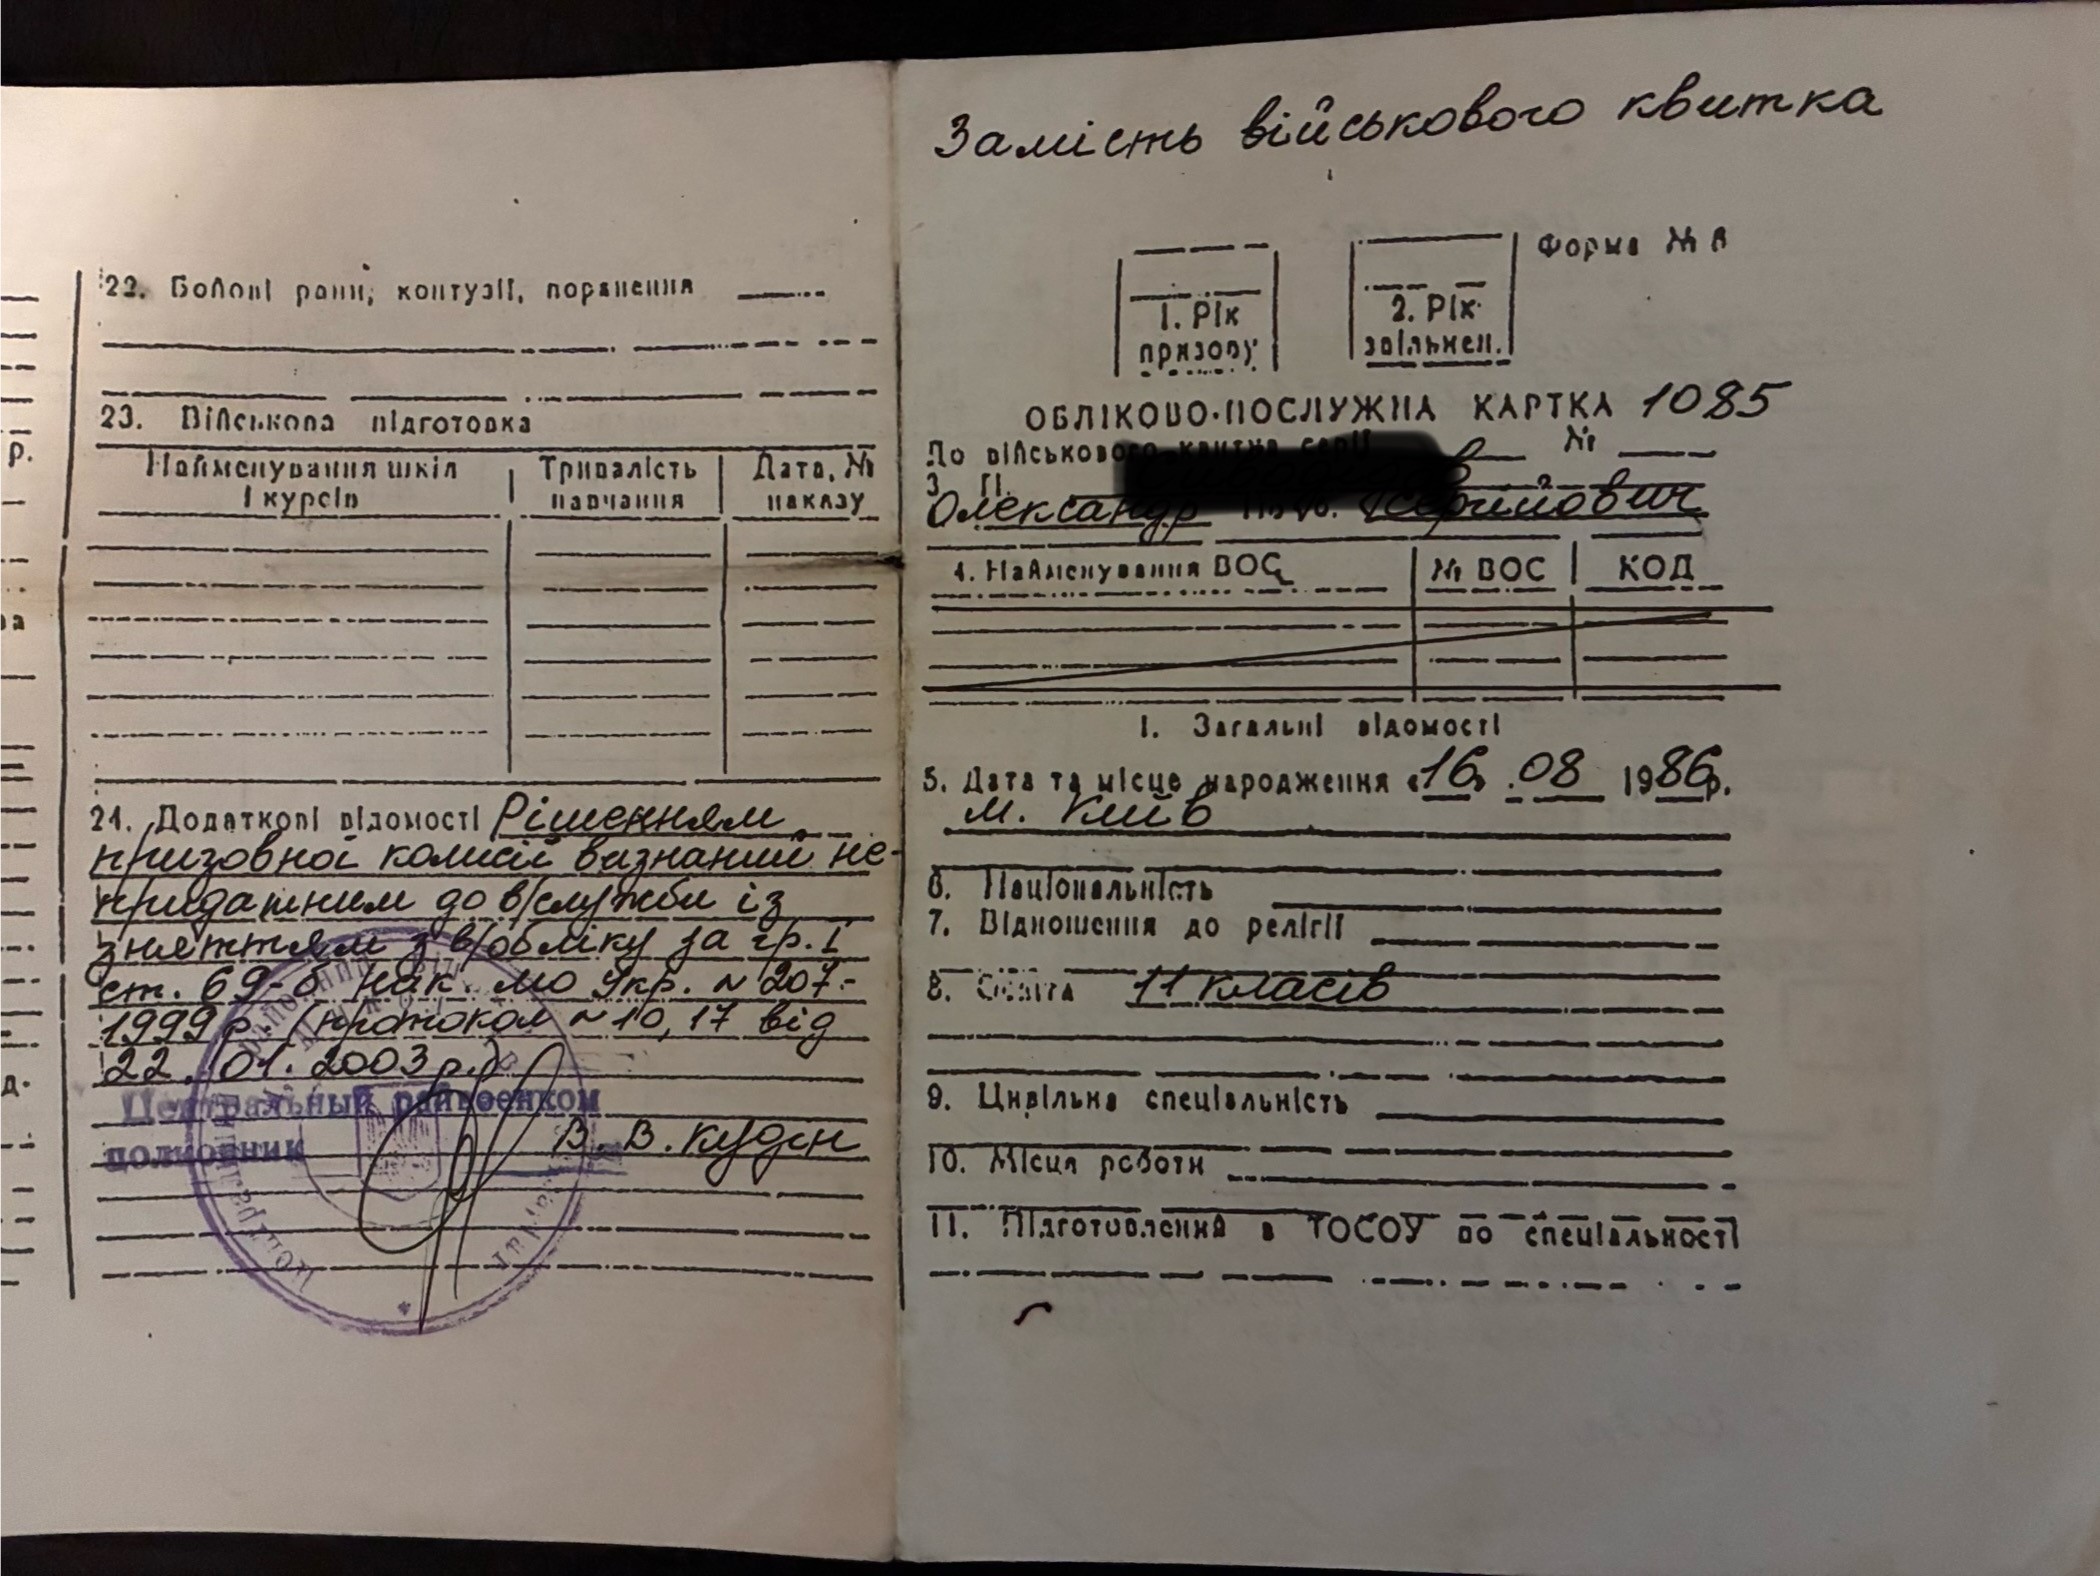 р.
ва
д.
22. Бойові рани, контузії, поранення
23. Військова підготовка
Найменування шкіл і курсів
Тривалість навчання
Дата, № наказу
24. Додаткові відомості Рішенням
призовної комісії визнаний не-
придатним до в/служби із
зняттям з в/обліку за гр. I
ст. 69-б нак. МО Укр. № 207-
1999 р. (протокол № 10, 17 від
22. 01. 2003 р.)
Центральный райвоенком
полковник В. В. Кудін
Замість військового квитка
Форма № 8
1. Рік призову
2. Рік звільнен.
ОБЛІКОВО-ПОСЛУЖНА КАРТКА 1085
До військового квитка серії №
3. П.
Олександр По б. Сергійович
4. Найменування ВОС
№ ВОС
КОД
I. Загальні відомості
5. Дата та місце народження «16» .08 1986р.
м. Київ
6. Національність
7. Відношення до релігії
8. Освіта 11 класів
9. Цивільна спеціальність
10. Місця роботи
11. Підготовлення в ТОСОУ по спеціальності